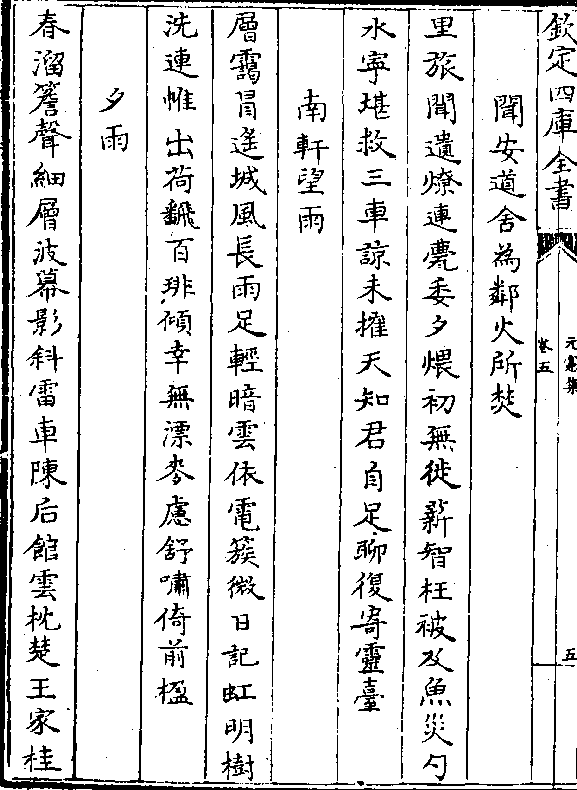 欽定四庫全書
元憲集
卷五
五
聞安道舍為鄰火所焚
里旅聞遺燎連甍委夕煨初無徙薪智枉被及魚災勺
水寧堪救三車諒未摧天知君自足聊復寄靈臺
南軒望雨
層靄冒遙城風長雨足輕暗雲依電簇微日記虹明樹
洗連帷出荷飜百琲傾幸無漂麥慮舒嘯倚前楹
夕雨
春溜簷聲細層波幕影斜雷車陳后館雲枕楚王家桂